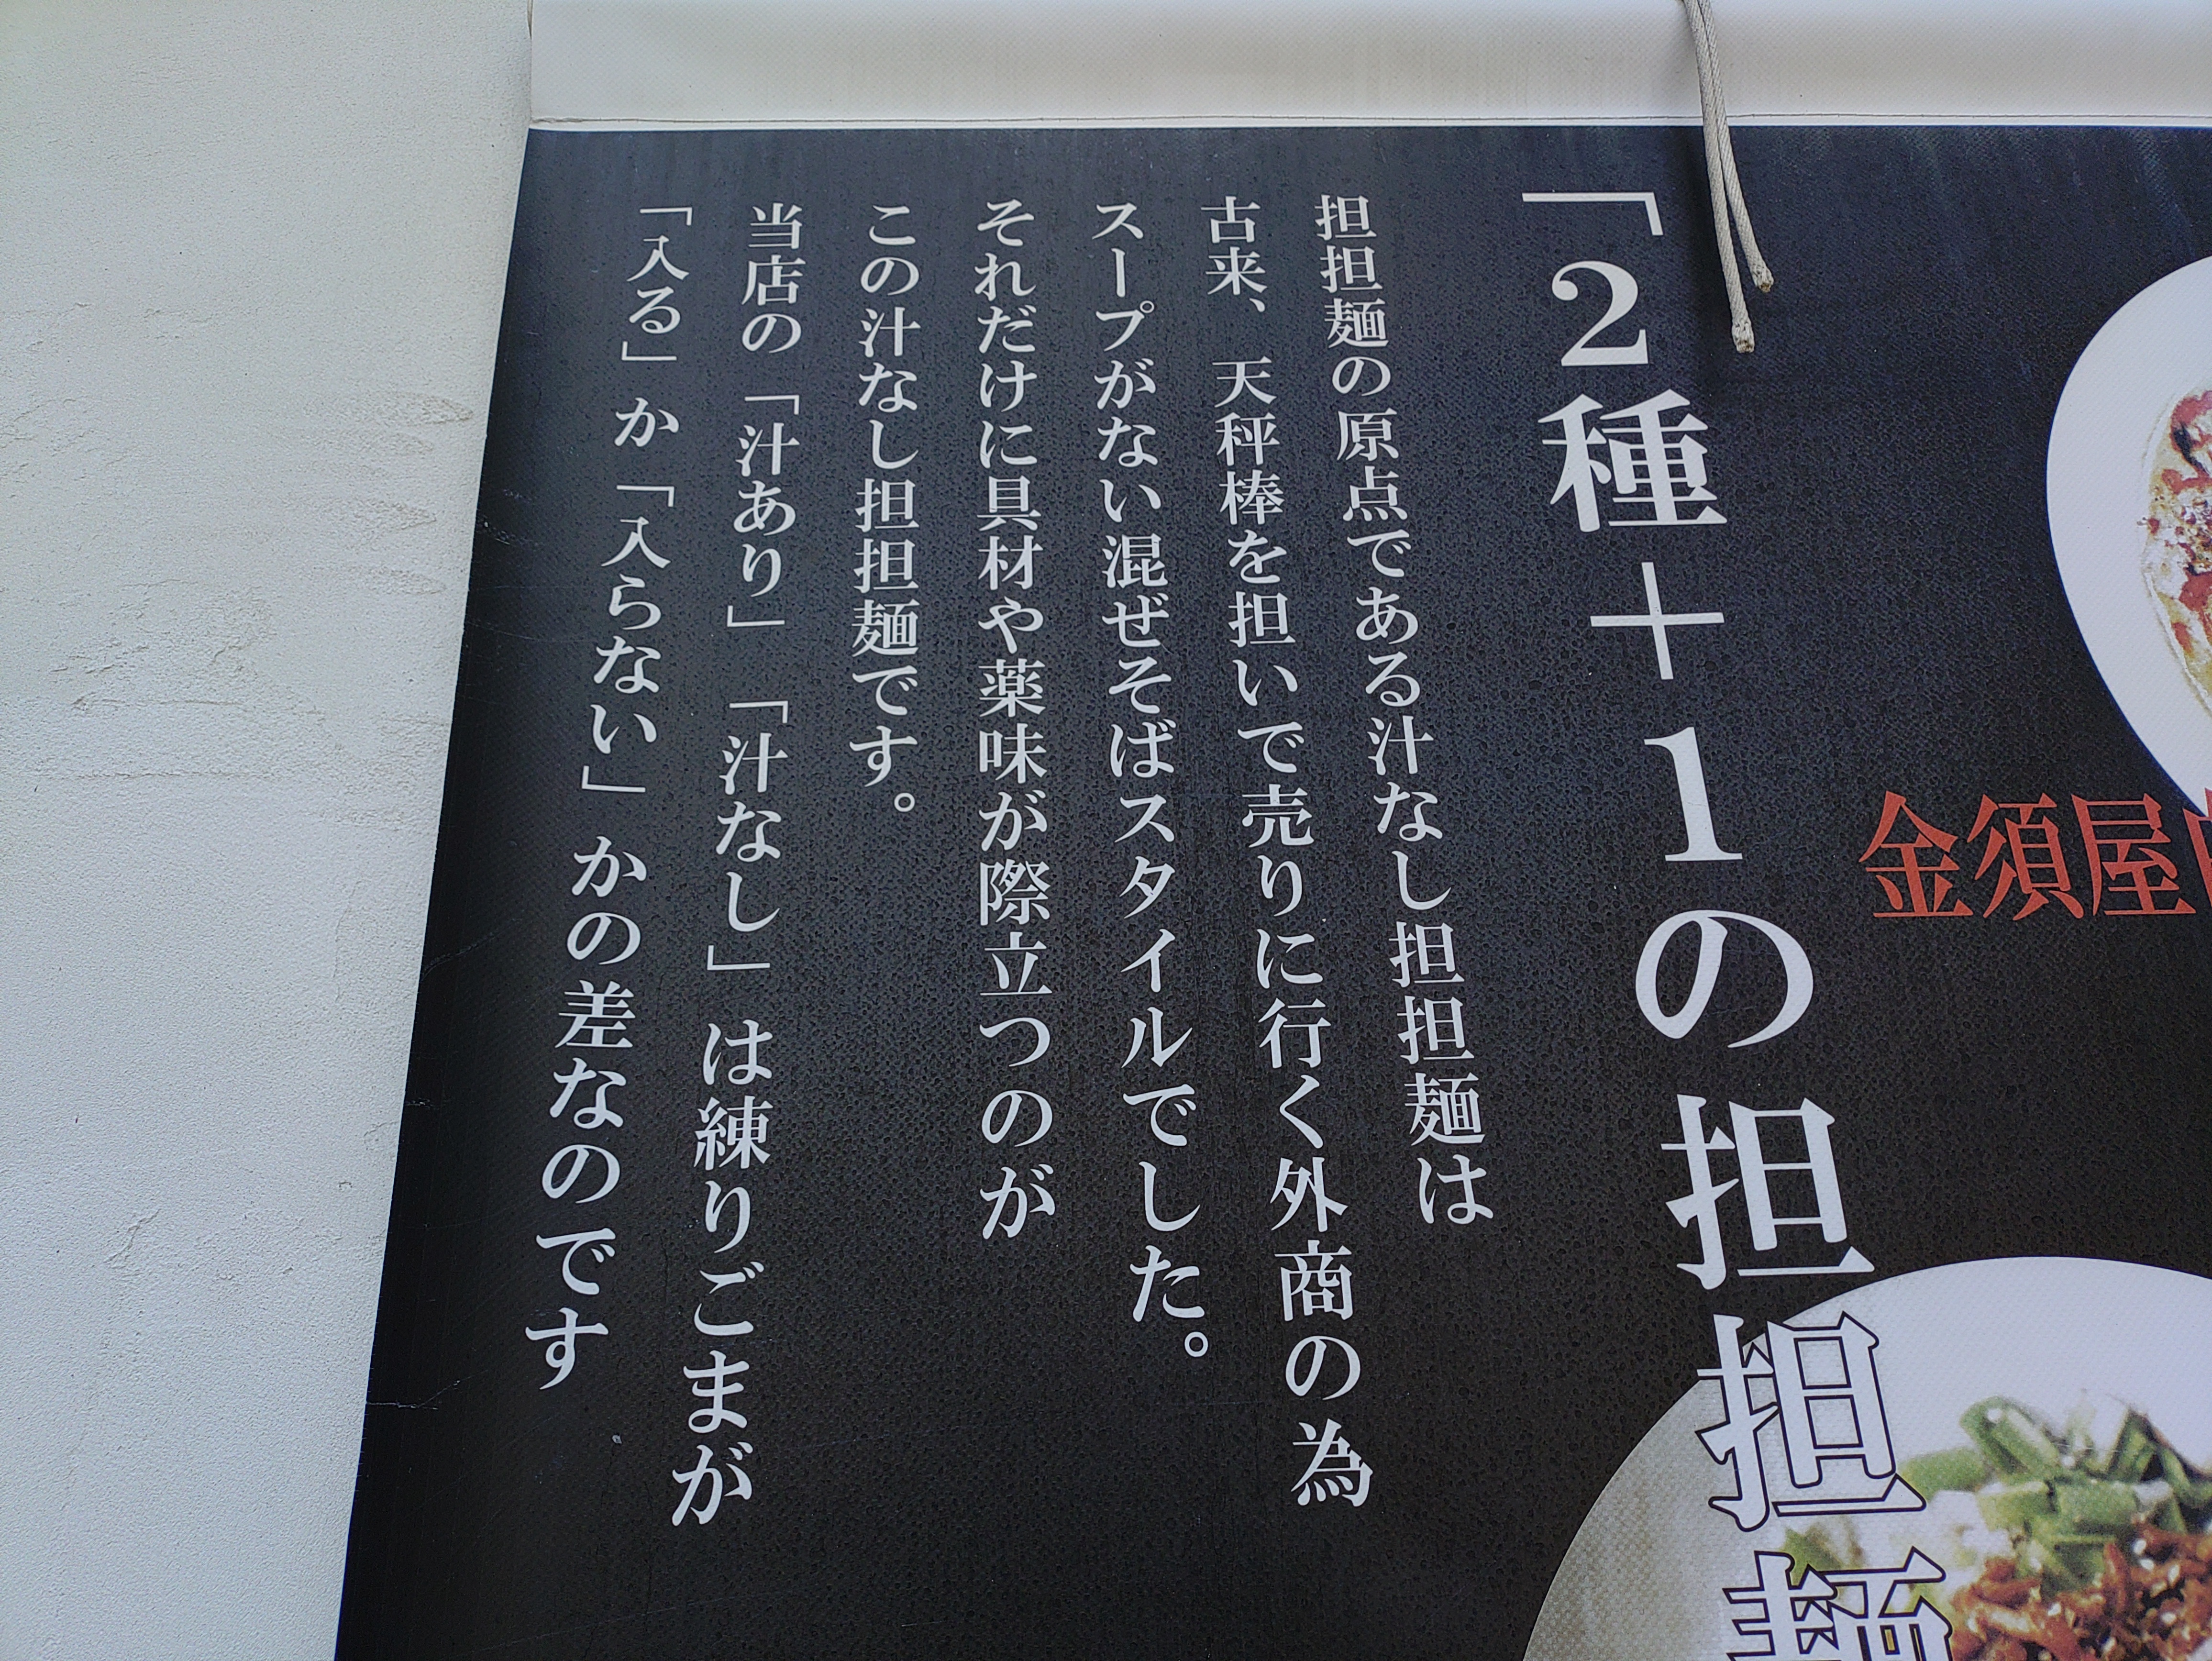 金須屋
「2種＋1の担担麺
担担麺の原点である汁なし担担麺は
古来、天秤棒を担いで売りに行く外商の為
スープがない混ぜそばスタイルでした。
それだけに具材や薬味が際立つのが
この汁なし担担麺です。
当店の「汁あり」「汁なし」は練りごまが
「入る」か「入らない」かの差なのです